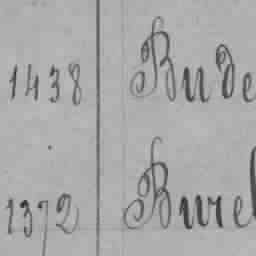 1438 Bude
1372 Burel